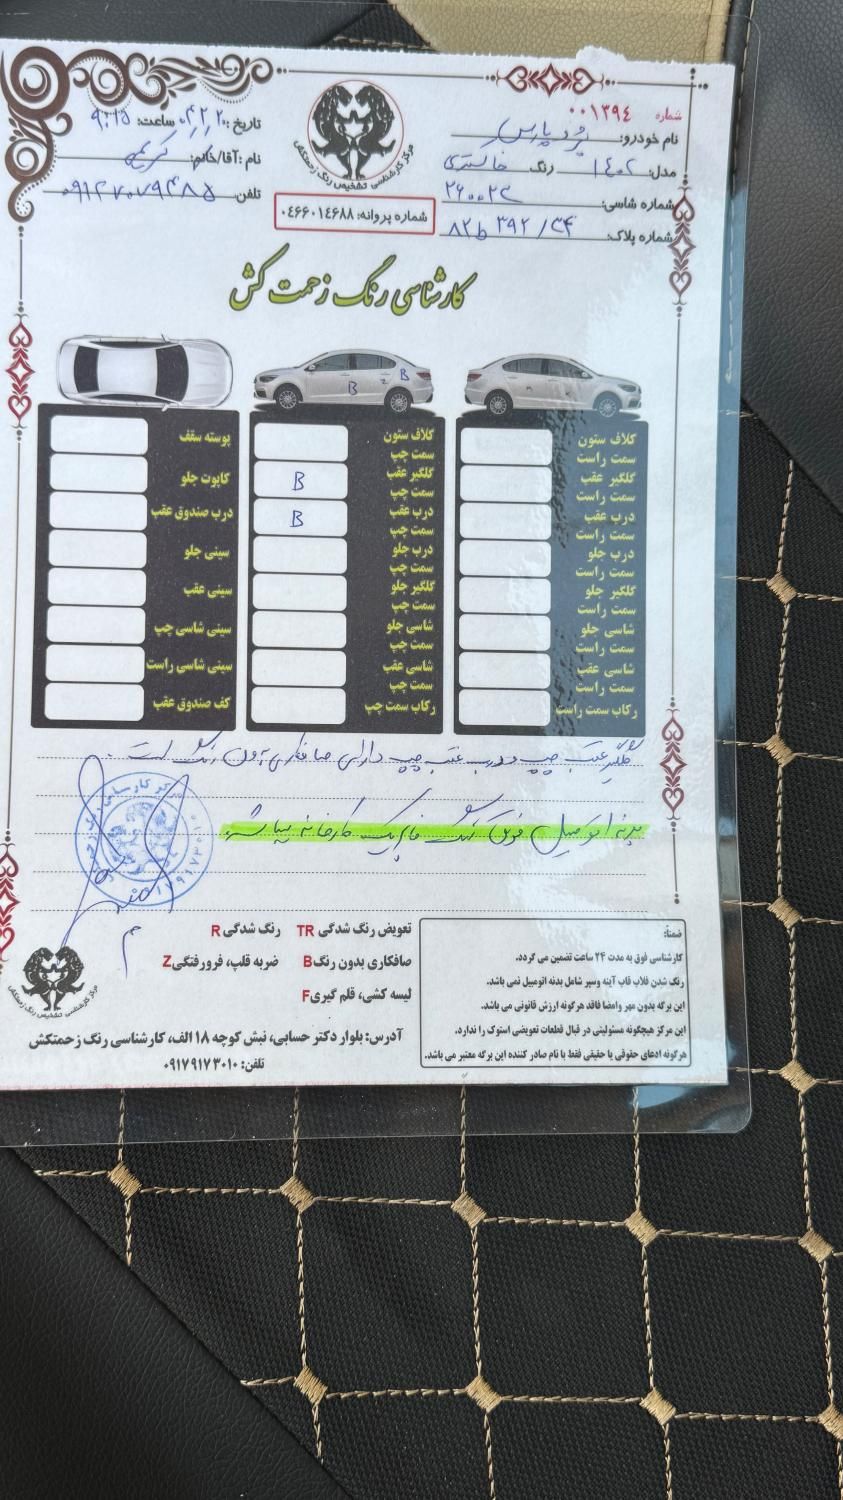 شماره ۰۰۱۳۹٤
نام خودرو: پژو پارس
مدل: ۱٤۰۲ رنگ خاکستری
شماره شاسی:
شماره پلاک:
تاریخ: ساعت: ۹:۱۵
نام: آقا/خانم: کریمی
تلفن:
مرکز کارشناسی تشخیص رنگ زحمتکش
شماره پروانه: ۰٤۶۶۰۱٤۶۸۸
کارشناسی رنگ زحمت کش
B z B
کلاف ستون سمت راست
گلگیر عقب سمت راست
درب عقب سمت راست
درب جلو سمت راست
گلگیر جلو سمت راست
شاسی جلو سمت راست
شاسی عقب سمت راست
رکاب سمت راست
کلاف ستون سمت چپ
گلگیر عقب سمت چپ B
درب عقب سمت چپ B
درب جلو سمت چپ
گلگیر جلو سمت چپ
شاسی جلو سمت چپ
شاسی عقب سمت چپ
رکاب سمت چپ
پوسته سقف
کاپوت جلو
درب صندوق عقب
سینی جلو
سینی عقب
سینی شاسی چپ
سینی شاسی راست
کف صندوق عقب
گلگیر عقب چپ و درب عقب چپ دارای صافکاری بدون رنگ است.
بدنه اتومبیل فوق رنگ فابریک کارخانه میباشد.
ضمناً:
کارشناسی فوق به مدت ۲۴ ساعت تضمین می گردد.
رنگ شدن قلاب قاب آینه وسپر شامل بدنه اتومبیل نمی باشد.
این برگه بدون مهر وامضا فاقد هرگونه ارزش قانونی می باشد.
این مرکز هیچگونه مسئولیتی در قبال قطعات تعویضی استوک را ندارد.
هرگونه ادعای حقوقی یا حقیقی فقط با نام صادر کننده این برگه معتبر می باشد.
تعویض رنگ شدگی TR رنگ شدگی R
صافکاری بدون رنگ B ضربه قلپ، فرورفتگی Z
لیسه کشی، قلم گیری F
مرکز کارشناسی تشخیص رنگ زحمتکش
آدرس: بلوار دکتر حسابی، نبش کوچه ۱۸ الف، کارشناسی رنگ زحمتکش
تلفن: ۰۹۱۷۹۱۷۳۰۱۰